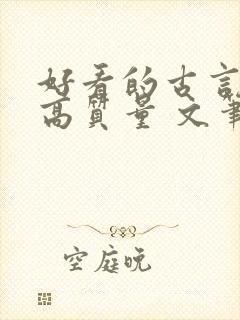 好看的古言
高質量 文筆
空庭晚